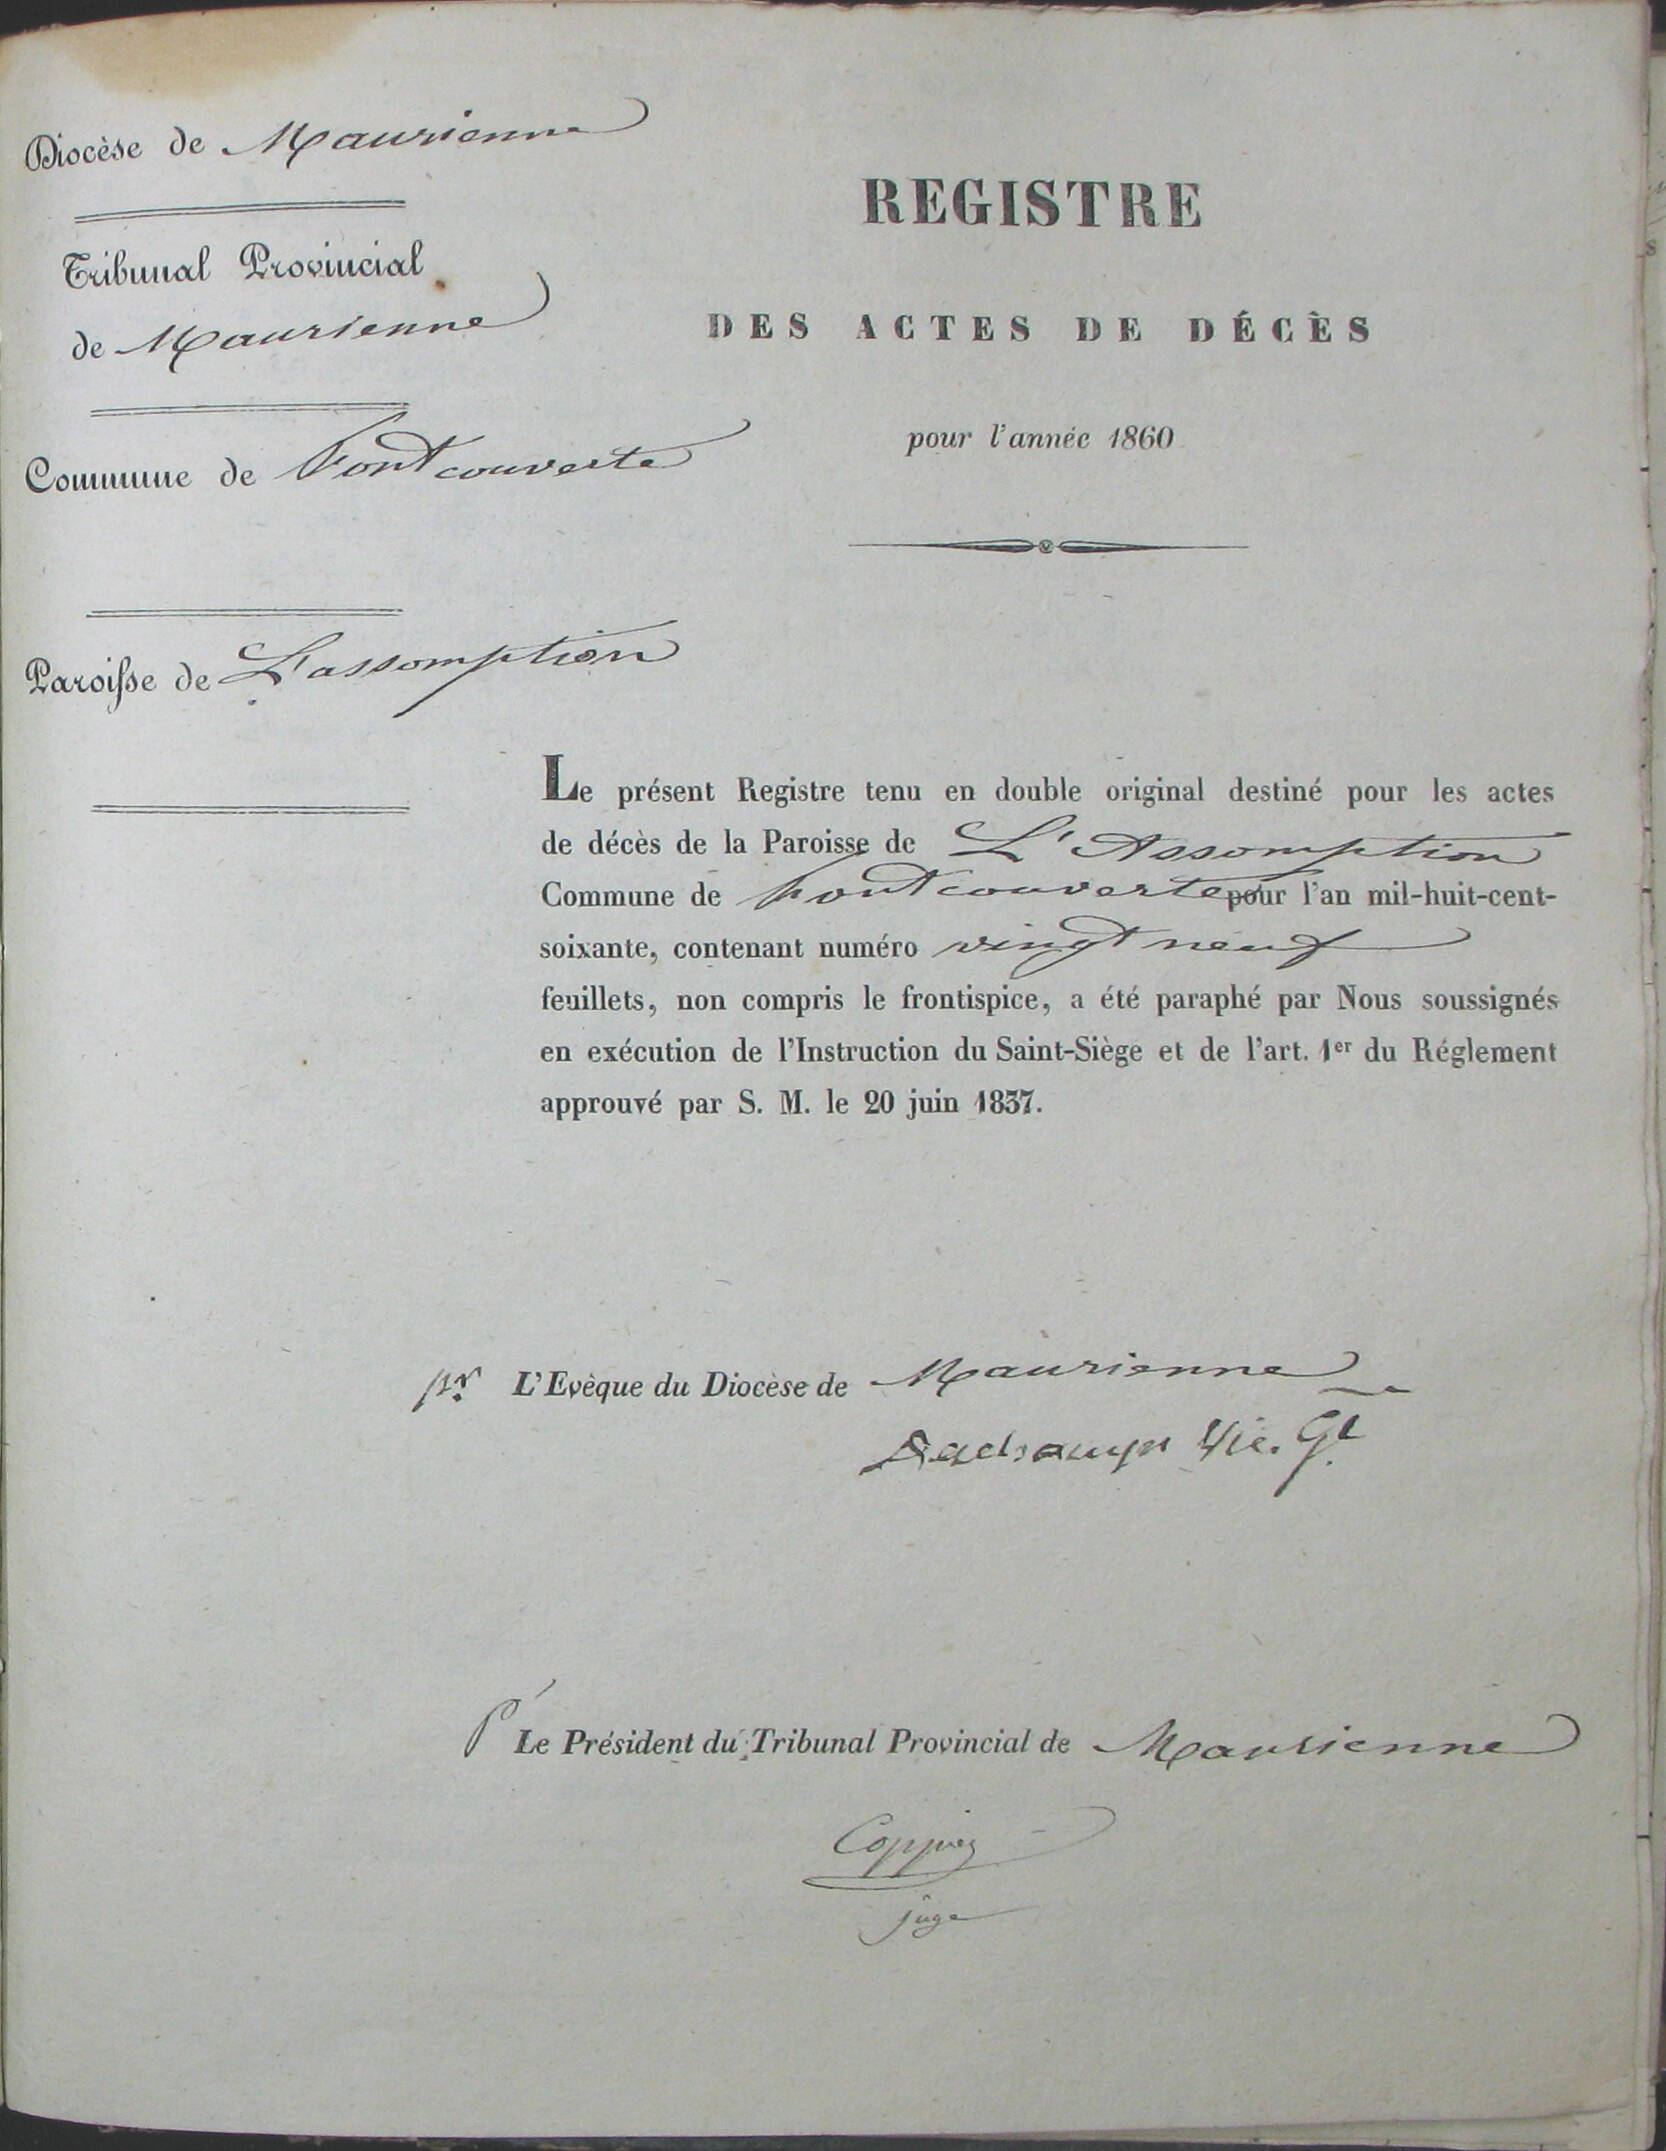 Diocèse de Maurienne
Tribunal Provincial
de Maurienne
Commune de Fontcouverte
Paroisse de L'assomption
REGISTRE
DES ACTES DE DÉCÈS
pour l'année 1860
Le présent Registre tenu en double original destiné pour les actes
de décès de la Paroisse de L'Assomption
Commune de fontcouverte pour l'an mil-huit-cent-
soixante, contenant numéro vingt neuf
feuillets, non compris le frontispice, a été paraphé par Nous soussignés
en exécution de l'Instruction du Saint-Siège et de l'art. 1er du Réglement
approuvé par S. M. le 20 juin 1837.
pr L'Evèque du Diocèse de Maurienne
Deschamps Vic. Gl
Pr Le Président du Tribunal Provincial de Maurienne
juge